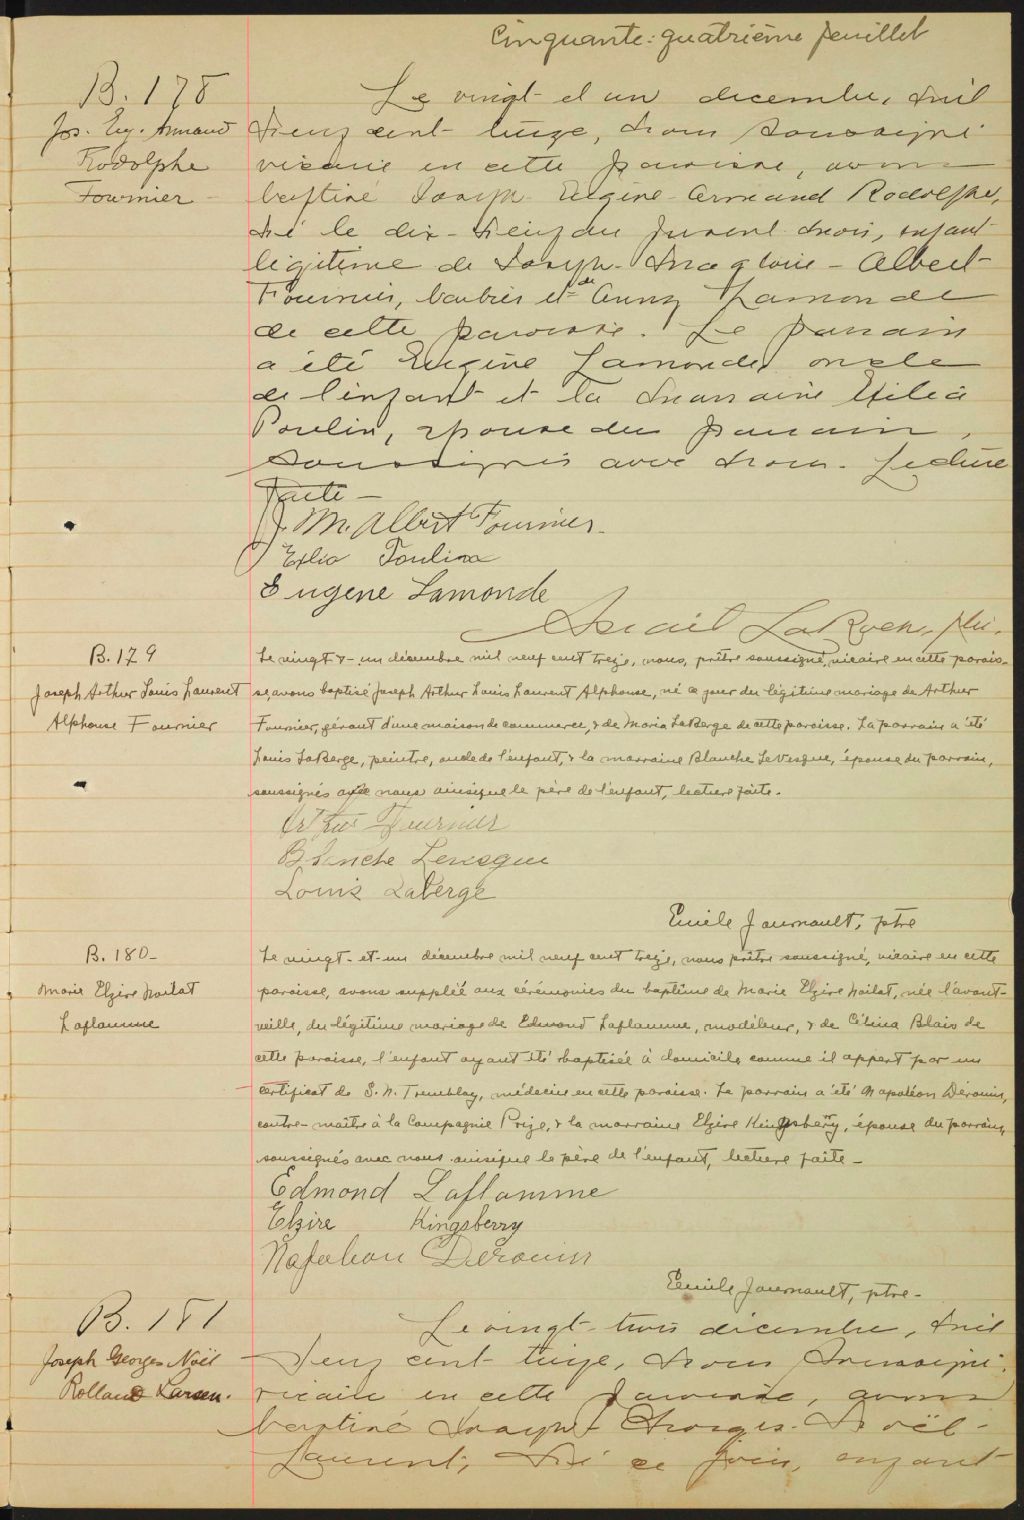 Cinquante-quatrième feuillet
B. 178
Jos. Eug. Armand
Rodolphe
Fournier
Le vingt et un décembre, mil
neuf cent treize, nous soussigné
vicaire en cette paroisse, avons
baptisé Joseph Eugène Armand Rodolphe,
né le dix-neuf du présent mois, enfant
légitime de Joseph-Magloire-Albert
Fournier, barbier et de Anny Lamonde
de cette paroisse. Le parrain
a été Eugène Lamonde oncle
de l'enfant et la marraine Exilia
Poulin, épouse du parrain,
soussignés avec nous. Lecture
faite-
J. M. Albert Fournier.
Exlia Poulin
Eugene Lamonde
B. 179
Joseph Arthur Louis Laurent
Alphonse Fournier
Le vingt & un décembre mil neuf cent treize, nous, prêtre soussigné, vicaire en cette parois-
se, avons baptisé Joseph Arthur Louis Laurent Alphonse, né ce jour du légitime mariage de Arthur
Fournier, gérant d'une maison de commerce, & de Maria LaBerge de cette paroisse. Le parrain a été
Louis LaBerge, peintre, oncle de l'enfant, & la marraine Blanche LeVesque, épouse du parrain,
soussignés avec nous ainsi que le père de l'enfant, lecture faite.
Arthur Fournier
Blanche Levesque
Louis Laberge
Emile Journault, ptre
B. 180-
Marie Elzire
Laflamme
Le vingt-et-un décembre mil neuf cent treize, nous prêtre soussigné, vicaire en cette
paroisse, avons supplié aux cérémonies du baptême de Marie Elzire, née l'avant-
veille, du légitime mariage de Edmond Laflamme, modeleur, & de Célina Blais de
cette paroisse, l'enfant ayant été baptisée à domicile comme il appert par un
certificat de S. N. Tremblay, médecin en cette paroisse. Le parrain a été Napoléon Dérouin,
contre-maître à la Compagnie Prize, & la marraine Elzire Kingsberry, épouse du parrain,
soussignés avec nous ainsi que le père de l'enfant, lecture faite-
Edmond Laflamme
Elzire Kingsberry
Napoleon Derouin
Emile Journault, ptre-
B. 181
Joseph Georges Noël
Rolland Larsen.
Le vingt-trois décembre, mil
neuf cent treize, nous soussigné
vicaire en cette paroisse, avons
baptisé Joseph Georges Noël-
Laurent, né ce jour, enfant